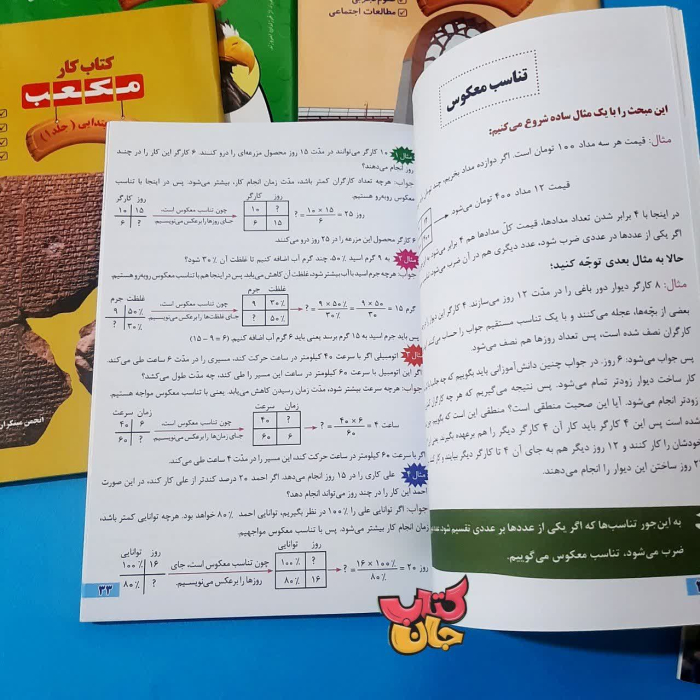 مطالعات اجتماعی
کتاب کار
مکعب
ابتدایی (جلد ۱)
انجمن مبتکران
تناسب معکوس
این مبحث را با یک مثال ساده شروع می‌کنیم:
مثال: قیمت هر سه مداد ۱۰۰ تومان است. اگر دوازده مداد بخریم،
قیمت ۱۲ مداد ۴۰۰ تومان می‌شود
در اینجا با ۴ برابر شدن تعداد مدادها، قیمت کلّ مدادها هم ۴ برابر
اگر یکی از عددها در عددی ضرب شود، عدد دیگری هم در آن ضرب
حالا به مثال بعدی توجّه کنید:
مثال: ۸ کارگر دیوار دور باغی را در مدّت ۱۲ روز می‌سازند. ۴ کارگر این دیوار
بعضی از بچّه‌ها، عجله می‌کنند و با یک تناسب مستقیم جواب را حساب
کارگران نصف شده است، پس تعداد روزها هم نصف می‌شود.
پس جواب می‌شود: ۶ روز. در جواب چنین دانش‌آموزانی باید بگوییم که
کار ساخت دیوار زودتر تمام می‌شود. پس نتیجه می‌گیریم که هر چه کارگر
زودتر انجام می‌شود. آیا این صحبت منطقی است؟ منطقی این است که بگوییم
شده است پس این ۴ کارگر باید کار آن ۴ کارگر دیگر را هم برعهده بگیرند.
خودشان را کار کنند و ۱۲ روز دیگر هم به جای آن ۴ تا کارگر دیگر بیایند و کار
روز ساختن این دیوار را انجام می‌دهند.
به این‌جور تناسب‌ها که اگر یکی از عددها بر عددی تقسیم شود،
ضرب می‌شود، تناسب معکوس می‌گوییم.
مثال ۱ ۱۰ کارگر می‌توانند در مدّت ۱۵ روز محصول مزرعه‌ای را درو کنند. ۶ کارگر این کار را در چند
روز انجام می‌دهند؟
جواب: هرچه تعداد کارگران کمتر باشد، مدّت زمان انجام کار، بیشتر می‌شود. پس در اینجا با تناسب
معکوس روبه‌رو هستیم.
روز کارگر
۱۰ ۱۵
۶ ?
چون تناسب معکوس است،
جای روزها را برعکس می‌نویسیم
روز کارگر
۱۰ ?
۶ ۱۵
? = ۱۰ × ۱۵ / ۶ = ۲۵ روز
۶ کارگر محصول این مزرعه را در ۲۵ روز درو می‌کنند.
مثال ۲ به ۹ گرم اسید ۵۰٪، چند گرم آب اضافه کنیم تا غلظت آن ۳۰٪ شود؟
جواب: هرچه جرم اسید با آب بیشتر شود، غلظت آن کاهش می‌یابد. پس در اینجا هم با تناسب معکوس روبه‌رو هستیم.
غلظت جرم
۹ ۵۰٪
? ۳۰٪
چون تناسب معکوس است،
جای غلظت‌ها را برعکس می‌نویسیم
غلظت جرم
۹ ۳۰٪
? ۵۰٪
? = ۹ × ۵۰٪ / ۳۰٪ = ۹ × ۵۰ / ۳۰ = ۱۵ گرم
پس باید جرم اسید به ۱۵ گرم برسد یعنی باید ۶ گرم آب اضافه کنیم (۶ = ۹ - ۱۵)
مثال ۳ اتومبیلی اگر با سرعت ۴۰ کیلومتر در ساعت حرکت کند، مسیری را در مدّت ۶ ساعت طی می‌کند.
اگر این اتومبیل با سرعت ۶۰ کیلومتر در ساعت این مسیر را طی کند، چه مدّت طول می‌کشد؟
جواب: هرچه سرعت بیشتر شود، مدّت زمان رسیدن کاهش می‌یابد. یعنی با تناسب معکوس مواجه هستیم.
زمان سرعت
۴۰ ۶
۶۰ ?
چون تناسب معکوس است،
جای زمان‌ها را برعکس می‌نویسیم
زمان سرعت
۴۰ ?
۶۰ ۶
? = ۴۰ × ۶ / ۶۰ = ۴ ساعت
اگر با سرعت ۶۰ کیلومتر در ساعت حرکت کند، این مسیر را در مدّت ۴ ساعت طی می‌کند.
مثال ۴ علی کاری را در ۱۵ روز انجام می‌دهد. اگر احمد ۲۰ درصد کندتر از علی کار کند، در این صورت
احمد این کار را در چند روز می‌تواند انجام دهد؟
جواب: اگر توانایی علی را ۱۰۰٪ در نظر بگیریم، توانایی احمد ۸۰٪ خواهد بود. هرچه توانایی کمتر باشد،
زمان انجام کار بیشتر می‌شود. پس با تناسب معکوس مواجهیم.
روز توانایی
۱۰۰٪ ۱۶
۸۰٪ ?
چون تناسب معکوس است، جای
روزها را برعکس می‌نویسیم.
روز توانایی
۱۰۰٪ ?
۸۰٪ ۱۶
? = ۱۶ × ۱۰۰٪ / ۸۰٪ = ۲۰ روز
۳۳
کتاب جان